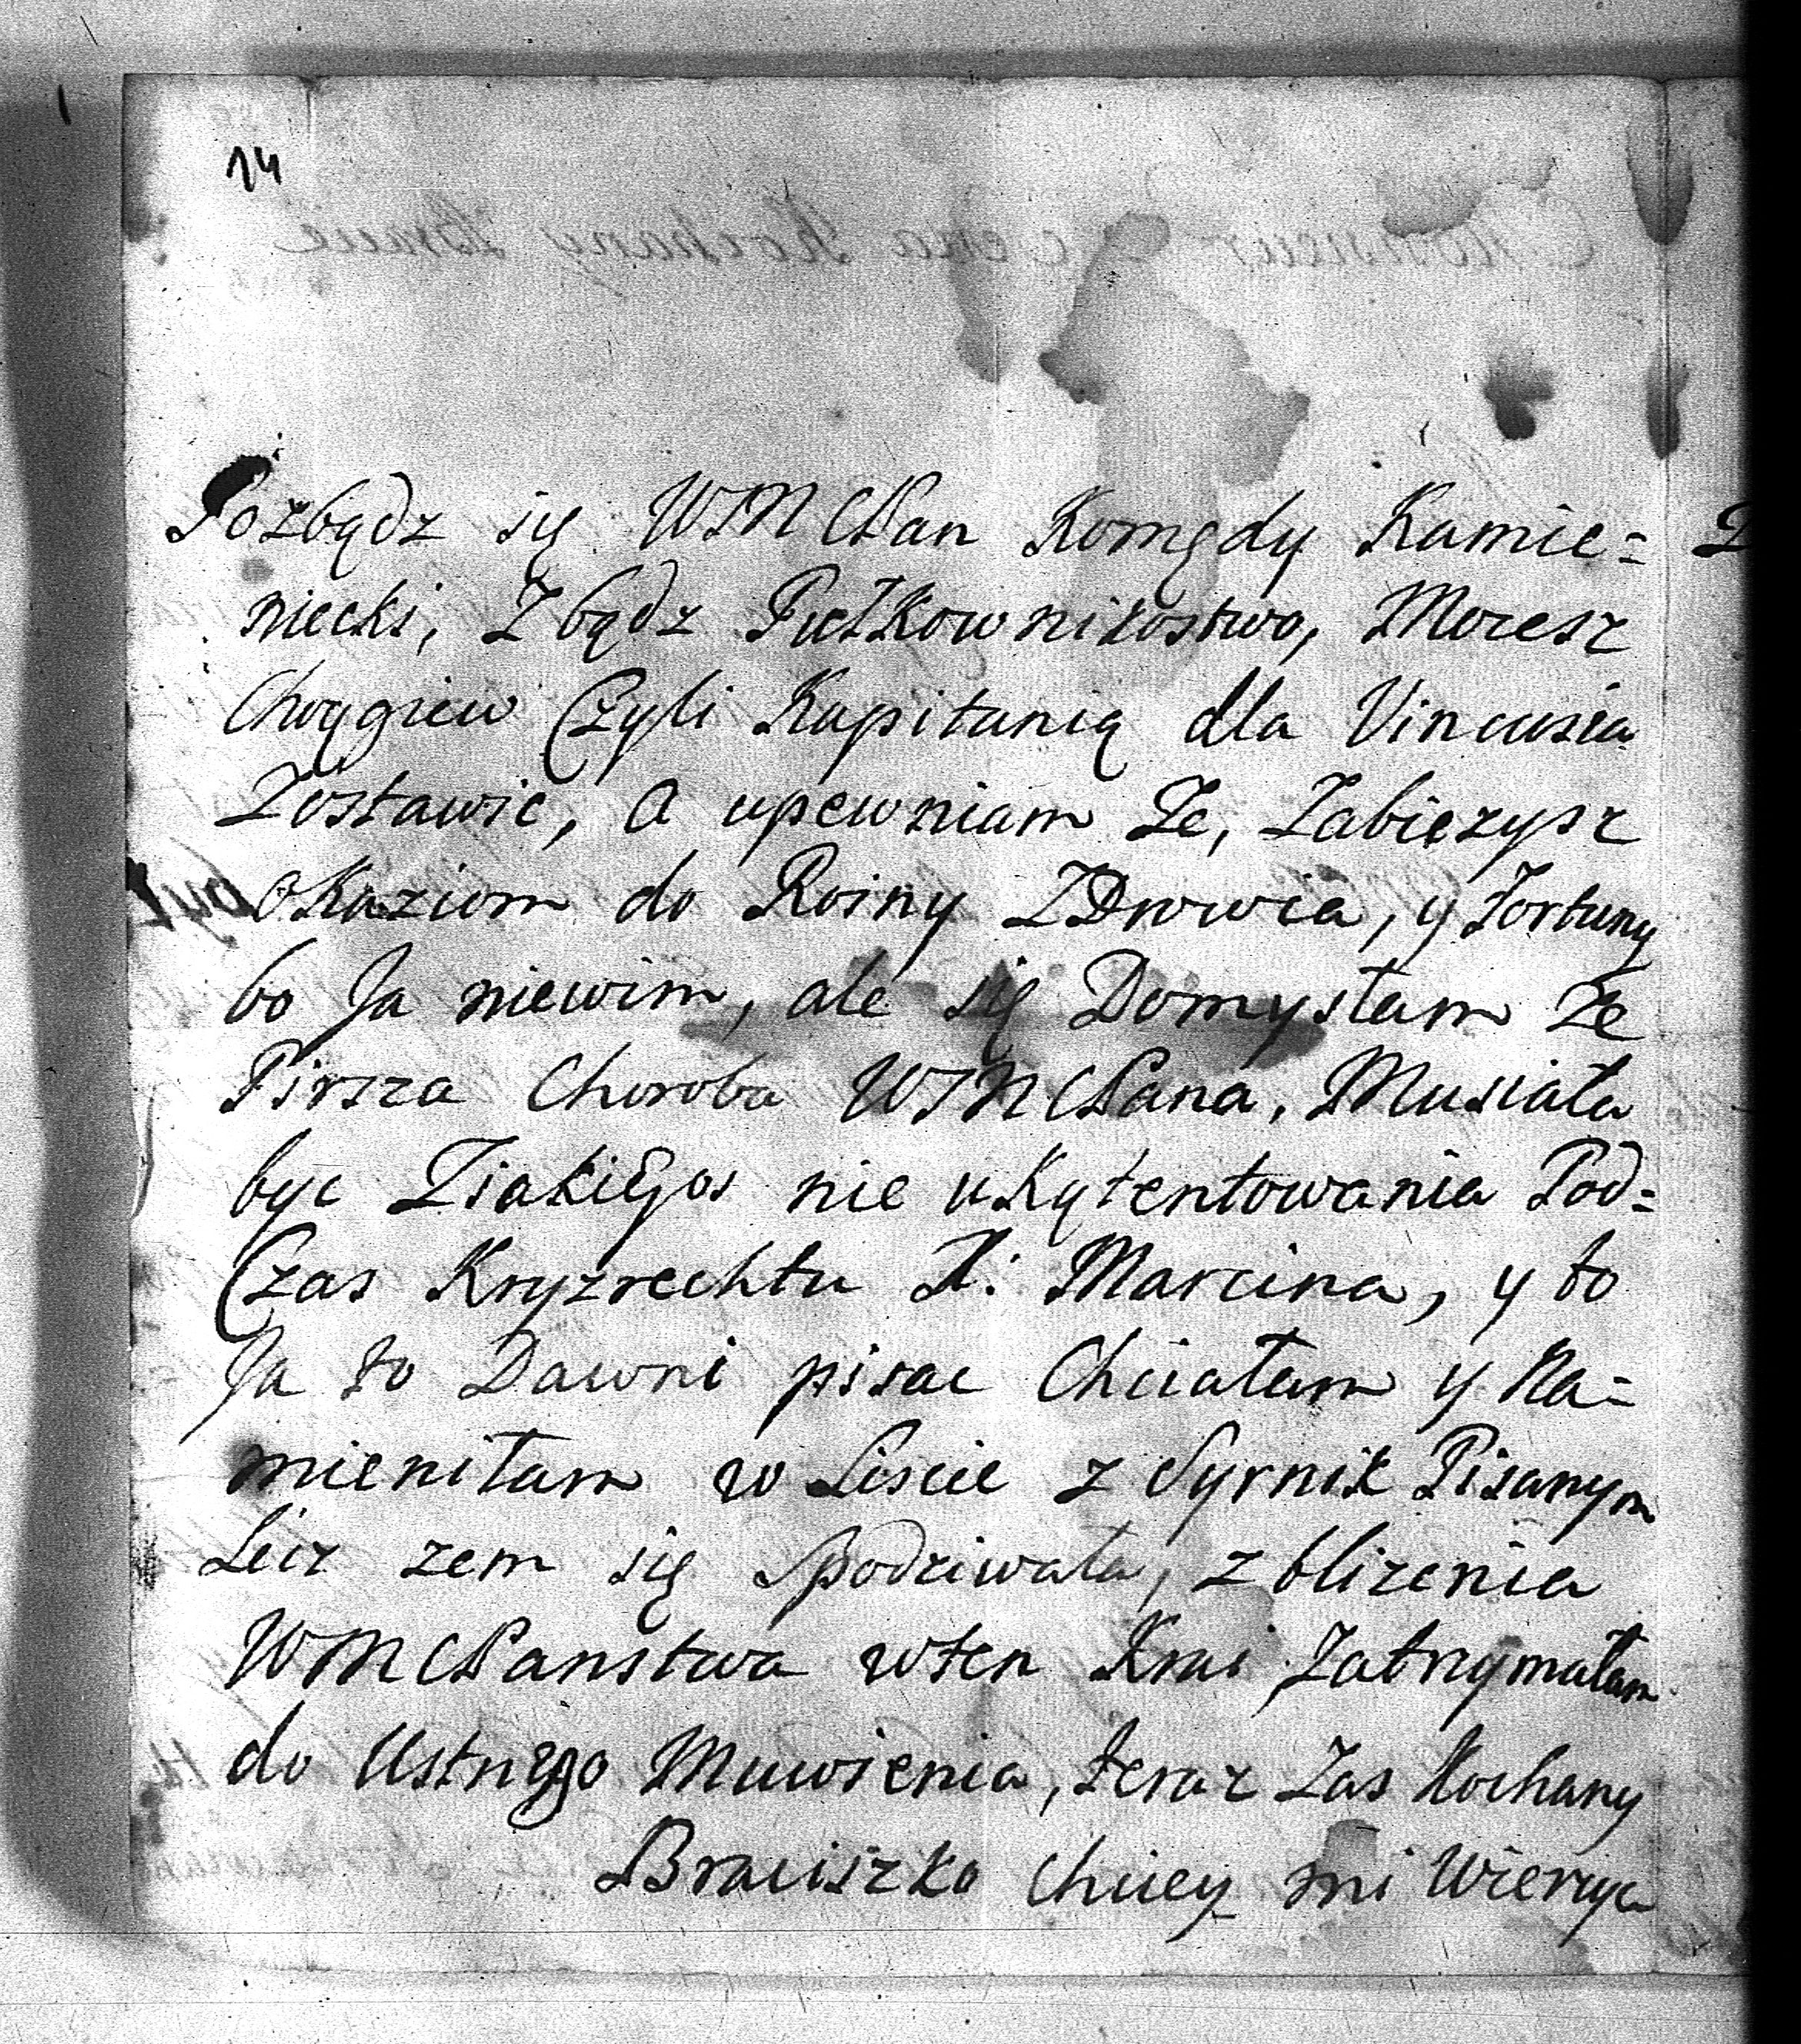 14
Pozbądz się WMCPan Komędy Kamie=
niecki, Zbądz Pułkownikostwo, Mozesz
Chorągiew Czyli Kapitanią dla Vincusia
Zostawić, A upewniam Ze, Zabieżysz
okaziom do Roiny ZDrowia, y Fortuny
bo Ja niewim, ale się Domyslam Ze
Pirsza Choroba WMCPana, Musiała
byc Ziakiegos nie ukątentowania Pod=
Czas Kryzrechtu X: Marcina, y to
Ja to Dawni pisac Chciałam y Na=
mieniłam w Liscie z Syrnik Pisanym
Lecz zem się Spodziwała, zblizenia
WMCPanstwa wten Krai Zatrzymałam
do Ustnego Muwienia, teraz Zas Kochany
Braciszko Chciey mi Wierzyc